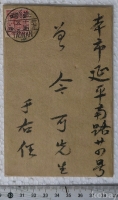 本市延平南路廿四号
曾今可先生
于右任